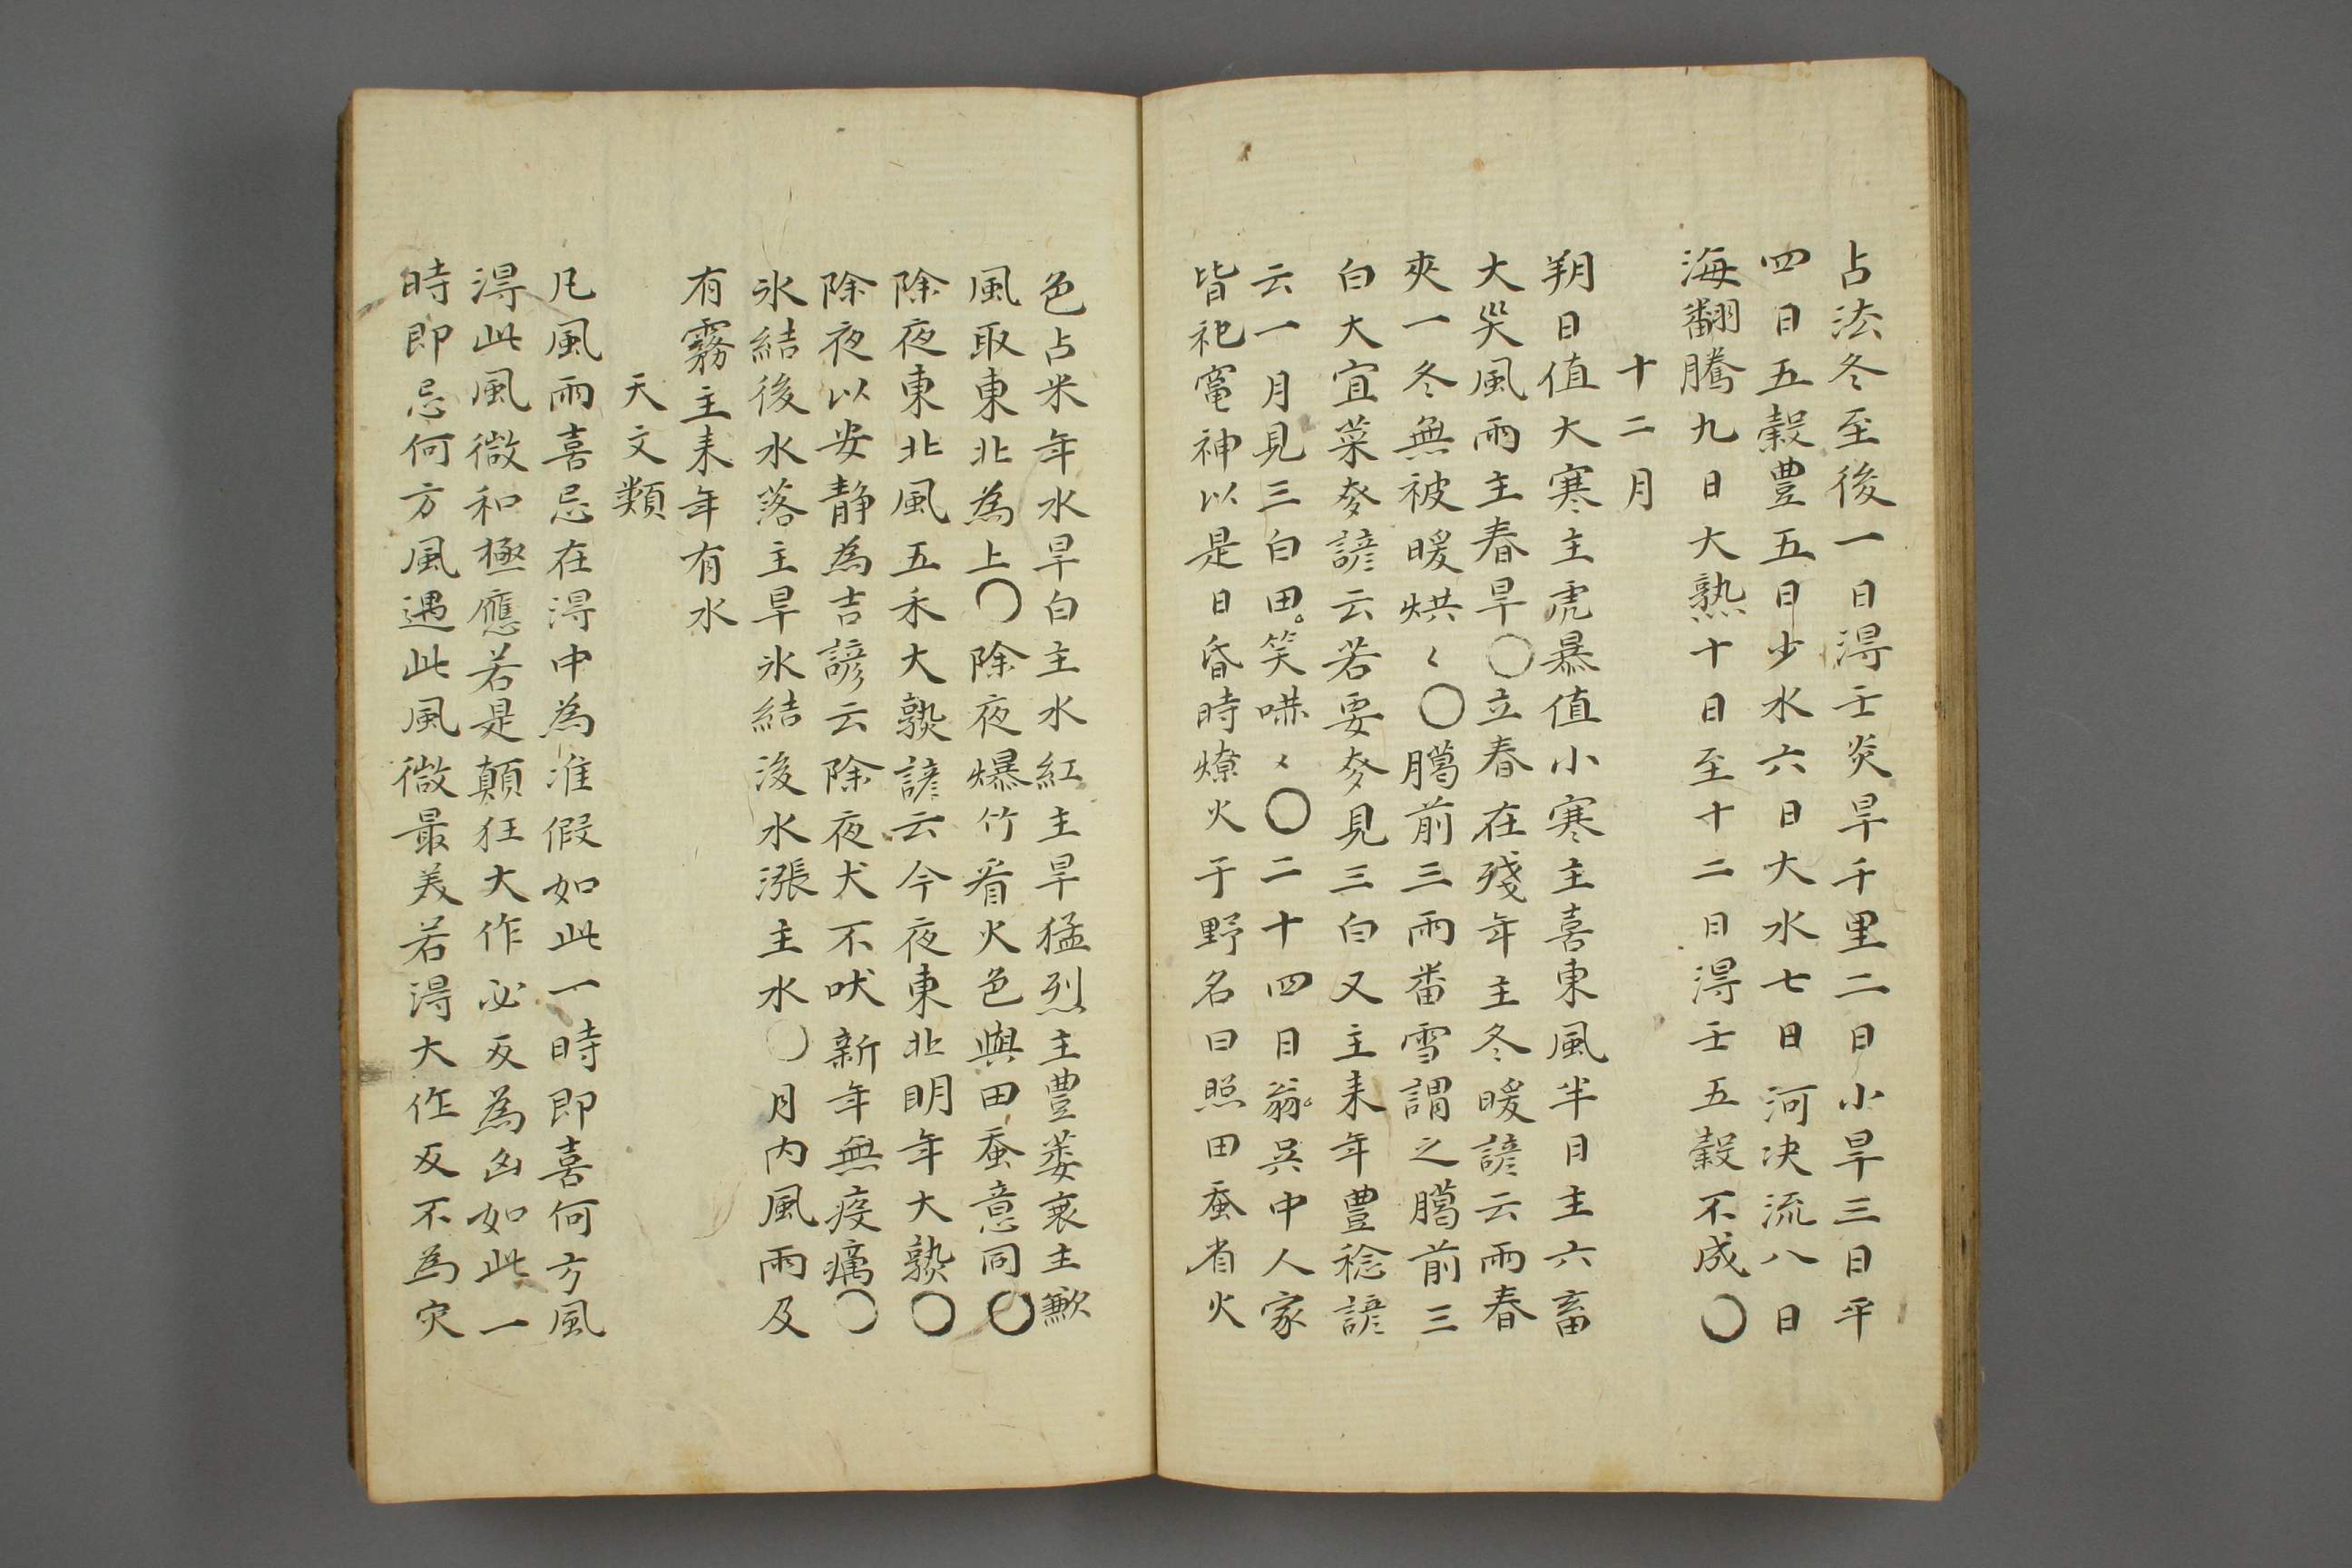 占法冬至後一日淂壬炎旱千里二日小旱三日平
四日五穀豊五日少水六日大水七日河决流八日
海翻騰九日大熟十日至十二日淂壬五穀不成〇
十二月
朔日值大寒主虎暴值小寒主喜東風半日主六畜
大災風雨主春旱〇立春在殘年主冬暖諺云雨春
夾一冬無被暖烘〻〇臈前三雨番雪謂之臈前三
白大宜菜麥諺云若要麥見三白又主来年豊稔諺
云一月見三白田。笑㗢〻〇二十四日翁。吴中人家
皆祀竈神以是日昏時燎火于野名曰照田蚕省火
色占米年水旱白主水紅主旱猛烈主豊萎衰主歉
風取東北為上〇除夜爆竹看火色與田蚕意同〇
除夜東北風五禾大熟諺云今夜東北明年大熟〇
除夜以安静為吉諺云除夜犬不吠新年無疫癘〇
氷結後水落主旱氷結後水漲主水〇月内風雨及
有霧主来年有水
天文類
凡風雨喜忌在淂中為准假如此一時即喜何方風
淂此風微和極應若是顛狂大作必反為凶如此一
時即忌何方風遇此風微最美若淂大作反不為灾